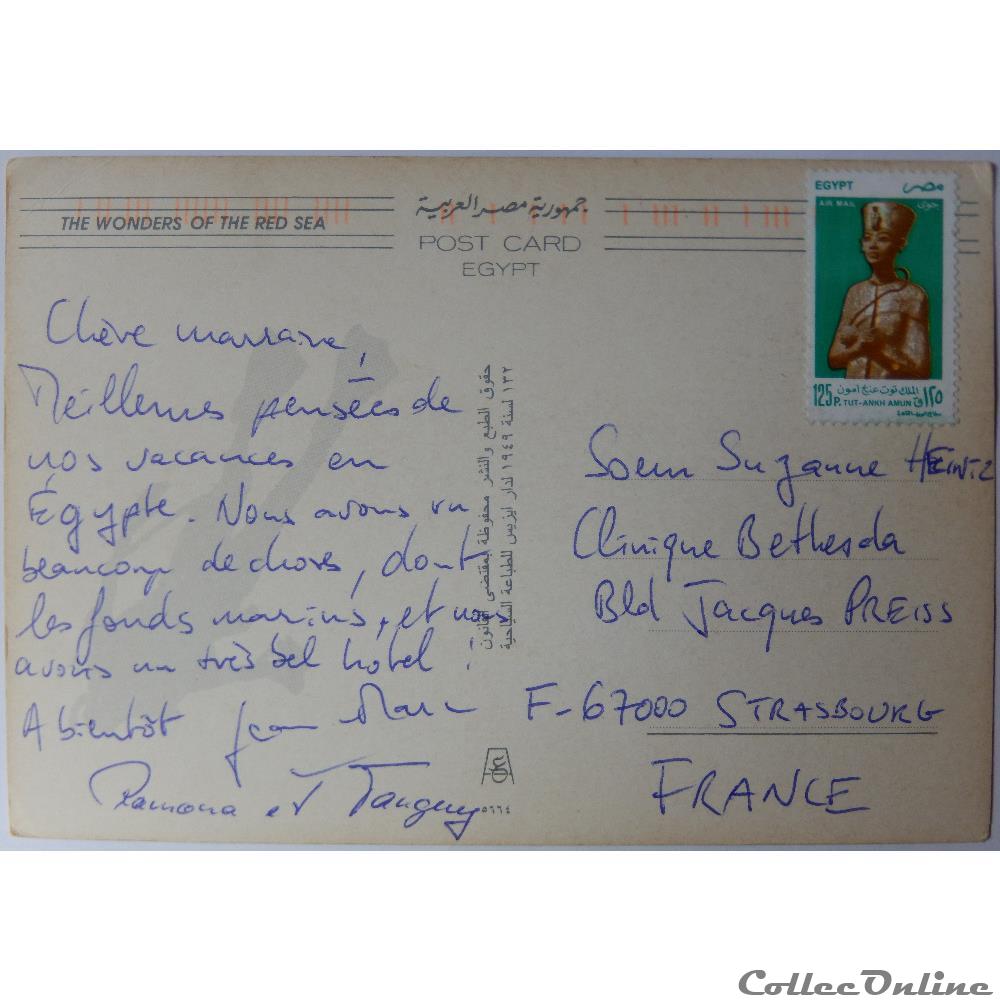 THE WONDERS OF THE RED SEA
جمهورية مصر العربية
POST CARD
EGYPT
EGYPT مصر
AIR MAIL جوى
الملك توت عنخ آمون
125 P. TUT-ANKH AMUN ١٢٥
Chère marraine,
Meilleures pensées de
nos vacances en
Égypte. Nous avons vu
beaucoup de choses, dont
les fonds marins, et nous
avons un très bel hotel !
A bientôt Jean Marc
Ramona et Tanguy
حقوق الطبع والنشر محفوظة بمقتضى القانون
١٣٢ لسنة ١٩٤٩ لدار ايزيس للطباعة السياحية
٥٦٦٤
Soeur Suzanne HEINTZ
Clinique Bethesda
Bld Jacques PREISS
F-67000 STRASBOURG
FRANCE
CollecOnline